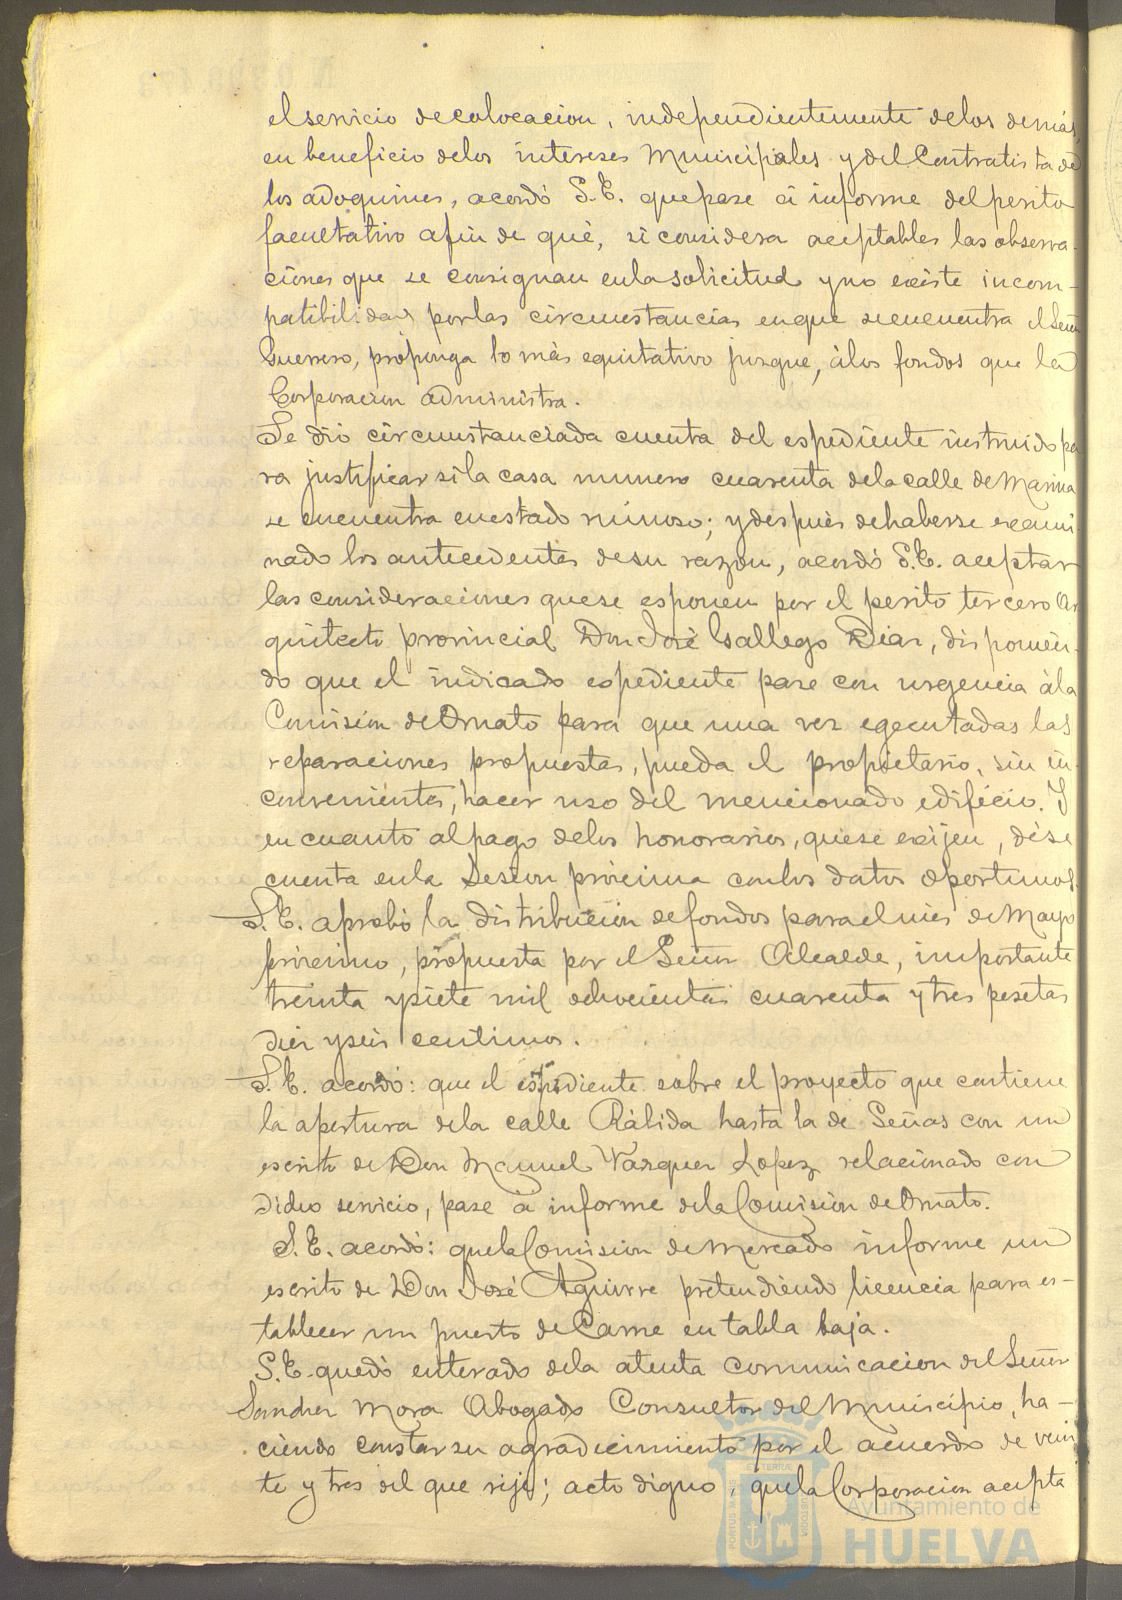 el servicio de colocacion, independientemente de los demás,
en beneficio de los intereses Municipales y del Contratista de
los adoquines, acordó S.E. que pase á informe del perito
facultativo afin de que, si considera aceptables las observa-
ciones que se consignan en la solicitud y no existe incom-
patibilidad por las circunstancias en que se encuentra el Señor
Guerrero, proponga lo más equitativo juzgue, á los fondos que la
Corporacion administra.
Se dió circunstanciada cuenta del espediente instruido pa
ra justificar si la casa numero cuarenta de la calle de Marina
se encuentra en estado ruinoso; y despues de haberse exami-
nado los antecedentes de su razon, acordó S.E. aceptar
las consideraciones que se esponen por el perito tercero Ar
quitecto provincial Don José Gallego Diaz, disponien-
do que el indicado espediente pase con urgencia á la
Comision de Ornato para que una vez egecutadas las
reparaciones propuestas, pueda el propietario, sin in-
convenientes, hacer uso del mencionado edificio. Y
en cuanto al pago de los honorarios, que se exijen, dése
cuenta en la Sesion próxima con los datos oportunos.
S.E. aprobó la distribucion de fondos para el mes de Mayo
próximo, propuesta por el Señor Alcalde, importante
treinta y siete mil ochocientas cuarenta y tres pesetas
diez y seis centimos.
S.E. acordó: que el espediente sobre el proyecto que contiene
la apertura de la calle Rábida hasta la de Señas con un
escrito de Don Manuel Vazquez Lopez relacionado con
dicho servicio, pase á informe de la Comision de Ornato.
S.E. acordó: que la Comision de Mercado informe un
escrito de Don José Aguirre pretendiendo licencia para es-
tablecer un puesto de Carne en tabla baja.
S.E. quedó enterado de la atenta comunicacion del Señor
Sanchez Mora Abogado Consultor del Municipio, ha-
ciendo constar su agradecimiento por el acuerdo de vein
te y tres del que rije; acto digno, que la Corporacion acepta
Ayuntamiento de
HUELVA